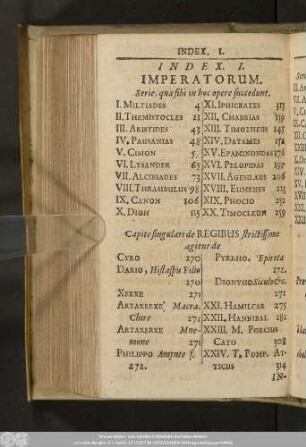 INDEX. I.
INDEX. I.
IMPERATORUM.
Serie, quæ sibi in hoc opere succedunt.
I. MILTIADES 4
II. THEMISTOCLES 21
III. ARISTIDES 43
IV. PAUSANIAS 48
V. CIMON
VI. LYSANDER 65
VII. ALCIBIADES 73
VIII. THRASIBULUS 98
IX. CANON 106
X. DION 115
XI. IPHICRATES 313
XII. CHABRIAS 139
XIII. TIMOTHEUS 145
XIV. DATAMES 152
XV. EPAMINONDAS 176
XVI. PELOPIDAS 197
XVII. AGESILAUS 206
XVIII. EUMENES
XIX. PHOCIO 252
XX. TIMOLEON 259
Capite singulari de REGIBUS strictissime
agitur de
CYRO 270
DARIO, Histaspis Filio
270
XERXE 271
ARTAXERXE Macro-
Chire 271
ARTAXERXE Mne-
mone 271
PHILIPPO Amyntæ f.
272.
PYRRHO, Epirota
272.
DIONYSIO Siculo &c.
272
XXI. HAMILCAR 275
XXII. HANNIBAL 281
XXIII. M. PORCIUS
CATO 308
XXIV. T. POMP. AT-
TICUS 314
IN-